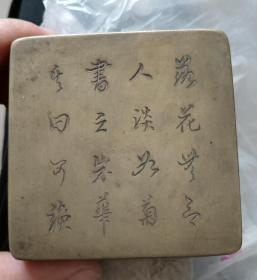 落花無言
人淡如菊
書之歲華
其曰可讀